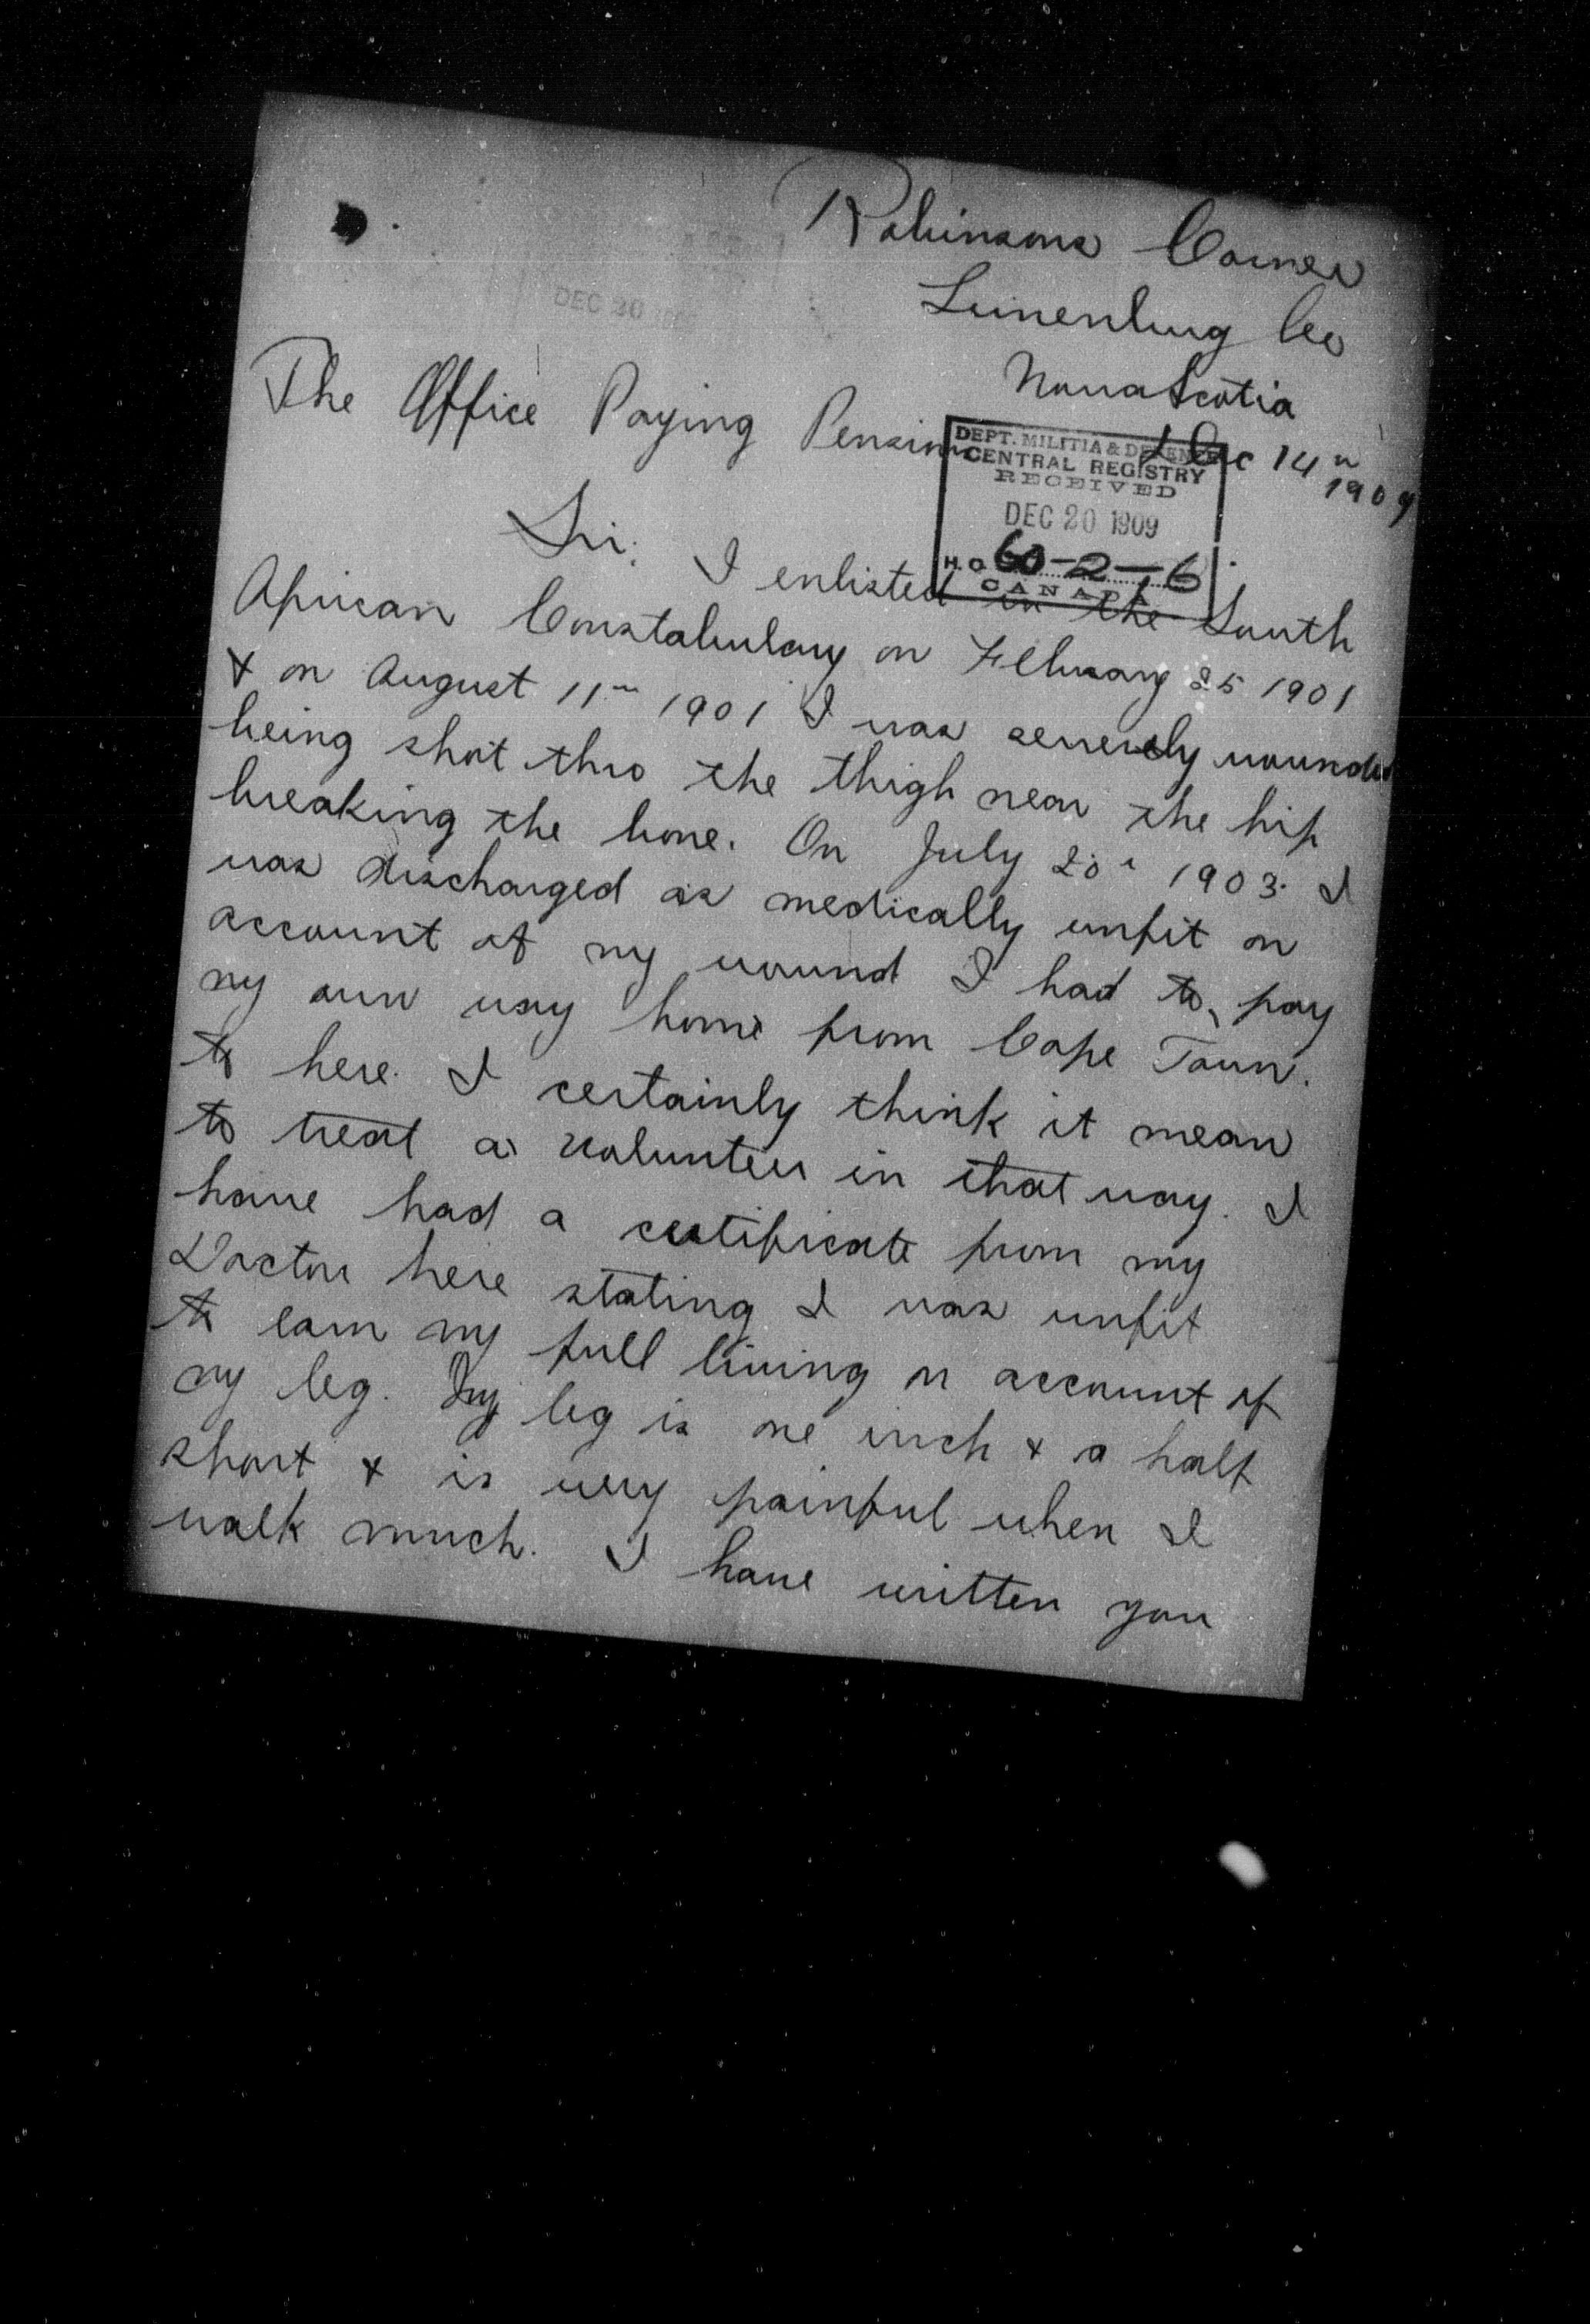 Robinsons Corner
Lunenburg Co
Nova Scotia
Dec 14th
1909
DEC 20
The Office Paying Pensions
DEPT. MILITIA & DEFENCE
CENTRAL REGISTRY
RECEIVED
DEC 20 1909
H.Q. 60-2-6
CANADA
Sir; I enlisted in the South
African Constabulary on February 25 1901
& on August 11th 1901 I was severely wounded
being shot thro the thigh near the hip
breaking the bone. On July 20th 1903. I
was discharged as medically unfit on
account of my wound I had to pay
my own way home from Cape Town.
to here. I certainly think it mean
to treat a volunteer in that way. I
have had a certificate from my
Doctor here stating I was unfit
to earn my full living on account of
my leg. My leg is one inch & a half
short & is very painful when I
walk much. I have written you